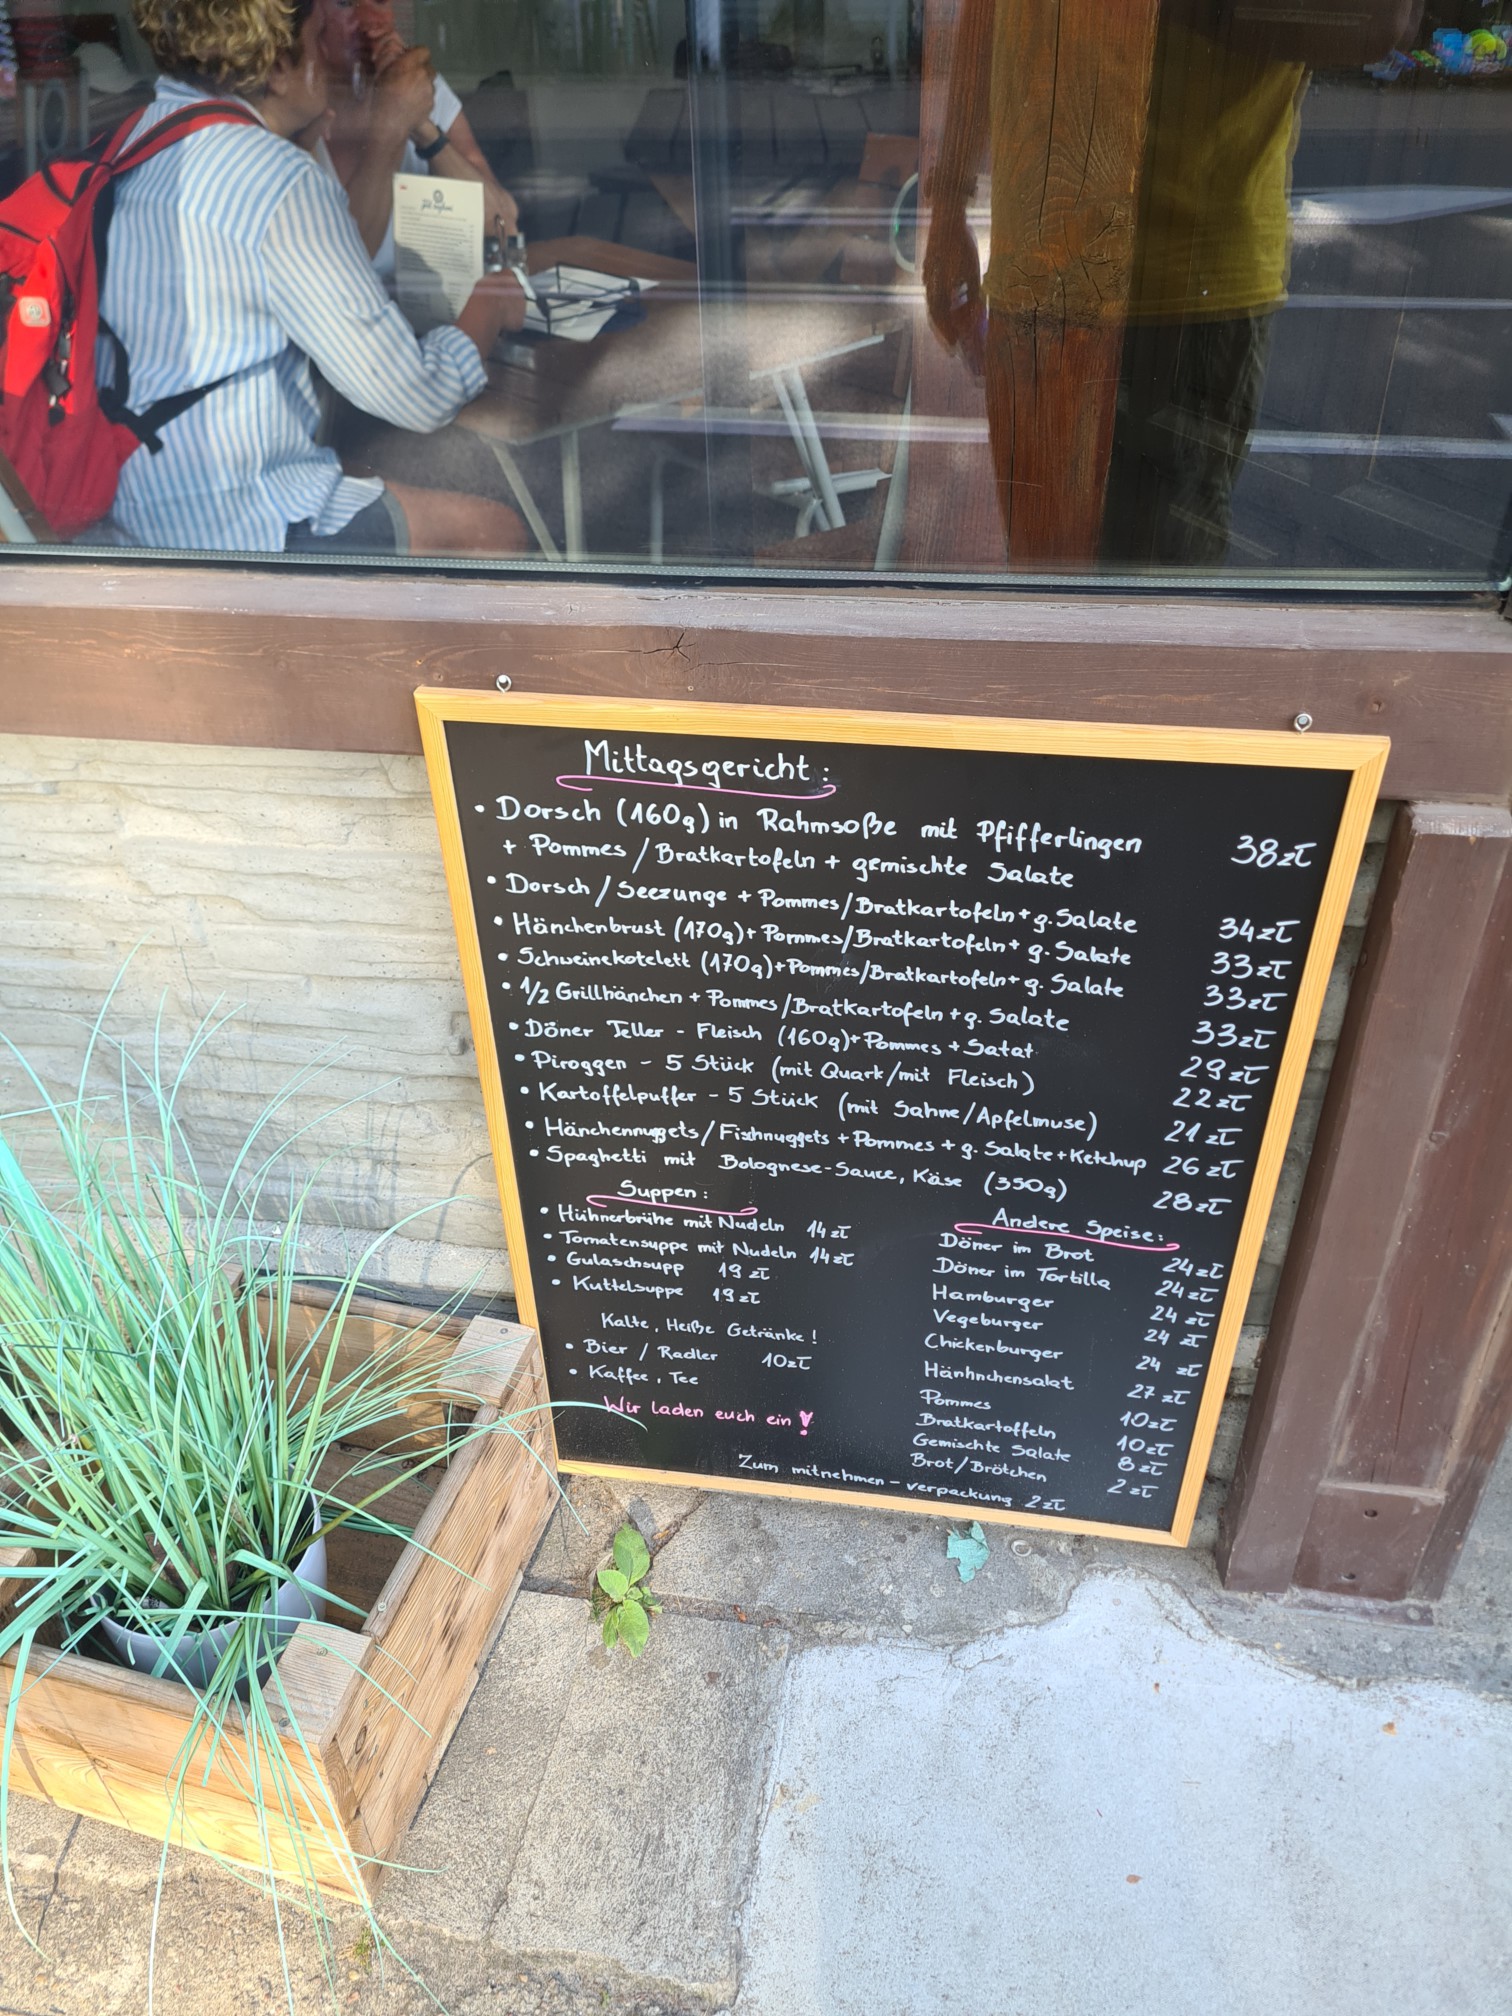 Mittagsgericht:
• Dorsch (160g) in Rahmsoße mit Pfifferlingen 38zł
+ Pommes / Bratkartofeln + gemischte Salate
• Dorsch / Seezunge + Pommes/Bratkartofeln + g. Salate 34zł
• Hänchenbrust (170g) + Pommes/Bratkartofeln + g. Salate 33zł
• Schweinekotelett (170g) + Pommes/Bratkartofeln + g. Salate 33zł
• 1/2 Grillhänchen + Pommes/Bratkartofeln + g. Salate 33zł
• Döner Teller - Fleisch (160g) + Pommes + Satat 29zł
• Piroggen - 5 Stück (mit Quark/mit Fleisch) 22zł
• Kartoffelpuffer - 5 Stück (mit Sahne/Apfelmuse) 21zł
• Hänchennuggets/Fischnuggets + Pommes + g. Salate + Ketchup 26zł
• Spaghetti mit Bolognese-Sauce, Käse (350g) 28zł
Suppen:
• Hühnerbrühe mit Nudeln 14zł
• Tomatensuppe mit Nudeln 14zł
• Gulaschsupp 19zł
• Kuttelsuppe 19zł
Kalte, Heiße Getränke!
• Bier / Radler 10zł
• Kaffee, Tee
Wir laden euch ein!
Andere Speise:
Döner im Brot 24zł
Döner im Tortilla 24zł
Hamburger 24zł
Vegeburger 24zł
Chickenburger 24zł
Hänhnchensalat 27zł
Pommes 10zł
Bratkartoffeln 10zł
Gemischte Salate 8zł
Brot/Brötchen 2zł
Zum mitnehmen - verpackung 2zł